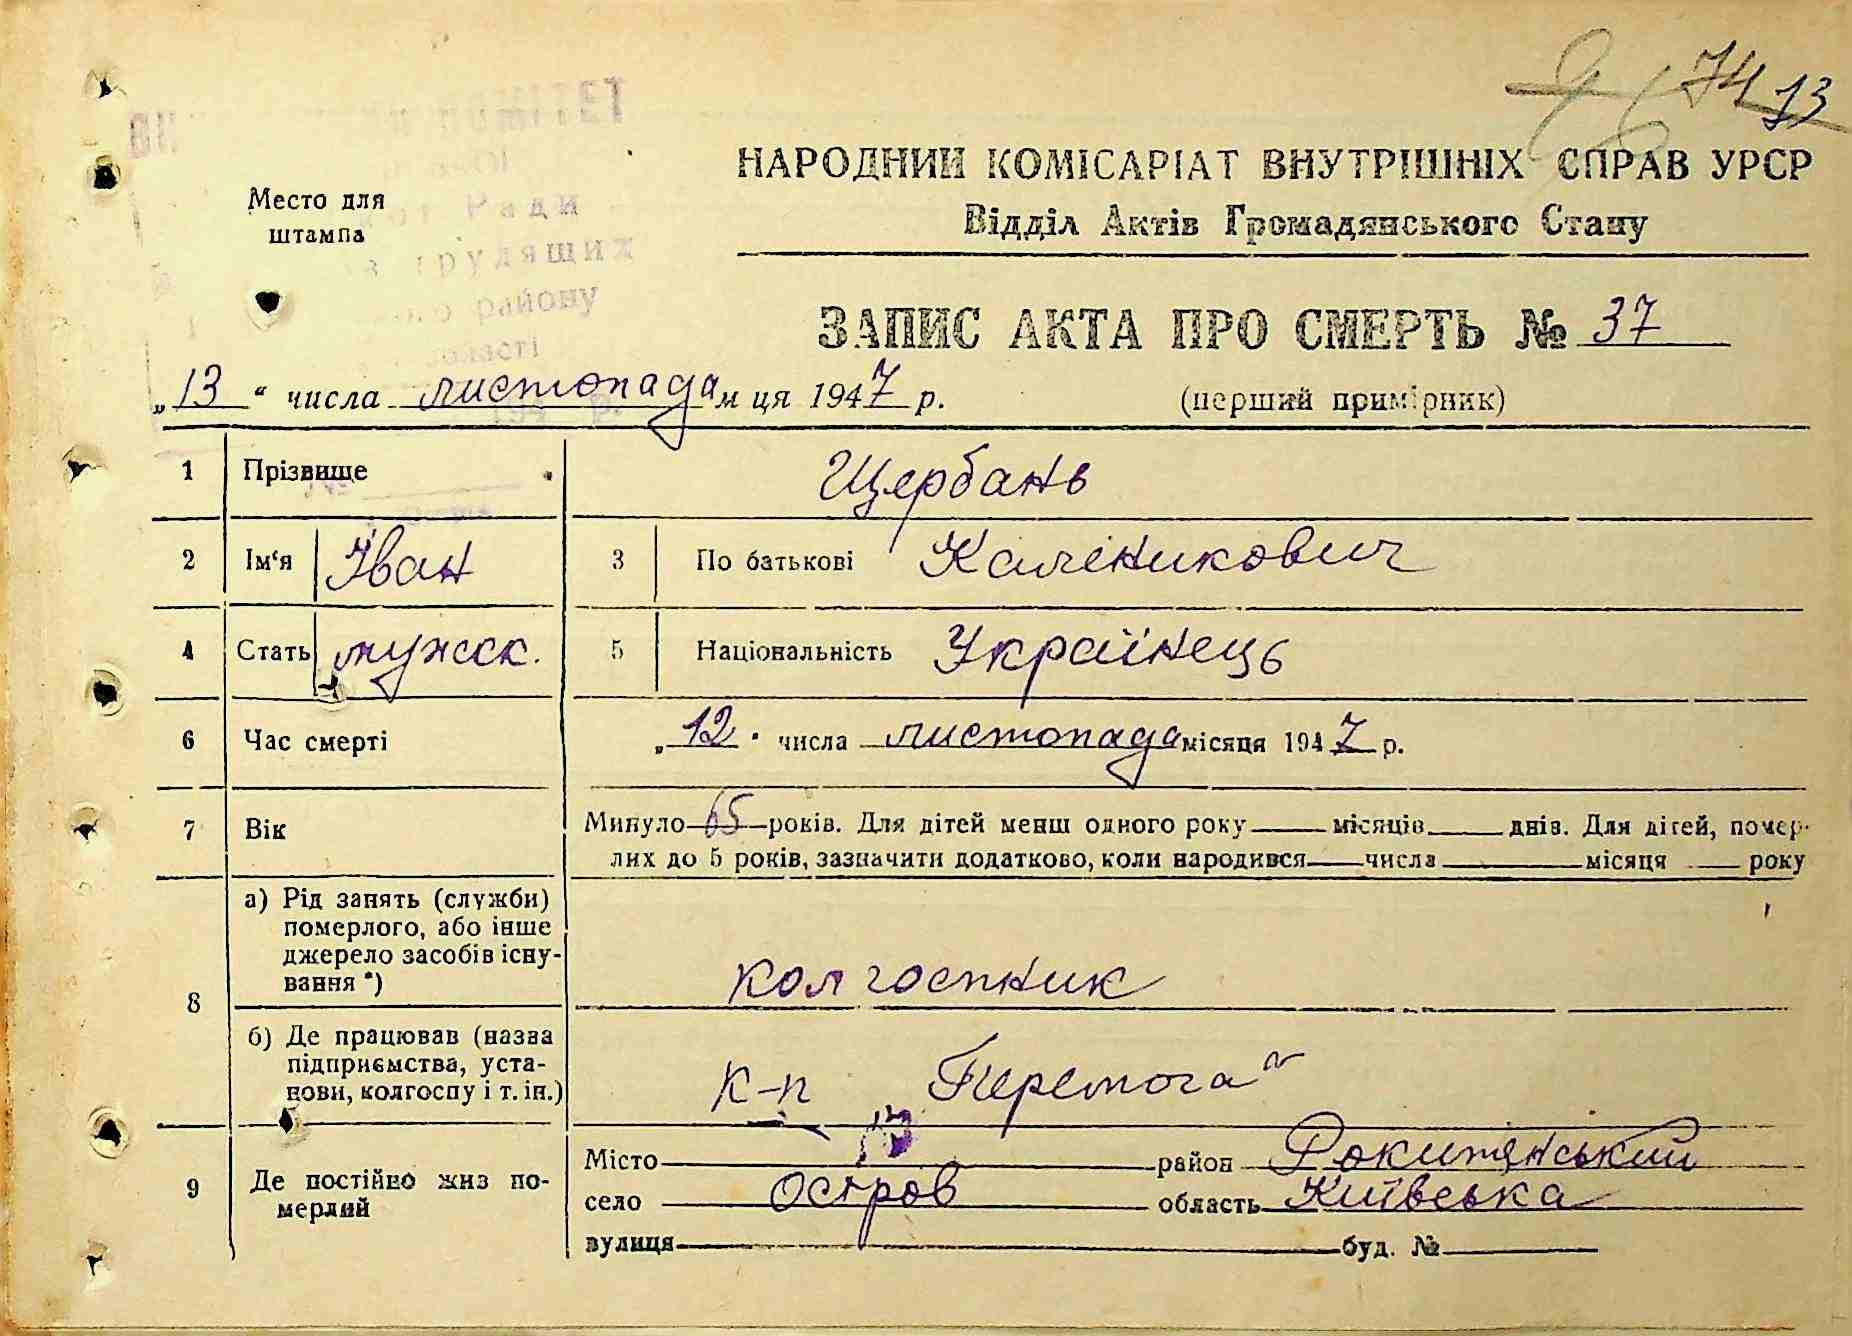 74 13
КОМІТЕТ
Ради
трудящих
району
області
194 р.
Место для
штампа
НАРОДНИЙ КОМІСАРІАТ ВНУТРІШНІХ СПРАВ УРСР
Відділ Актів Громадянського Стану
ЗАПИС АКТА ПРО СМЕРТЬ № 37
„13“ числа листопада м ця 1947 р. (перший примірник)
1 Прізвище Щербань
2 Ім‘я Іван 3 По батькові Каленикович
4 Стать мужск. 5 Національність Українець
6 Час смерті „12" числа листопада місяця 1947 р.
7 Вік Минуло 65 років. Для дітей менш одного року місяців днів. Для дітей, помер-
лих до 5 років, зазначити додатково, коли народився числа місяця року
8 а) Рід занять (служби)
померлого, або інше
джерело засобів існу-
вання *) колгоспник
б) Де працював (назва
підприємства, уста-
нови, колгоспу і т. ін.) к-п Перемога"
9 Де постійно жив по-
мерлий
Місто район Рокитянський
село Остров область Київська
вулиця буд. №